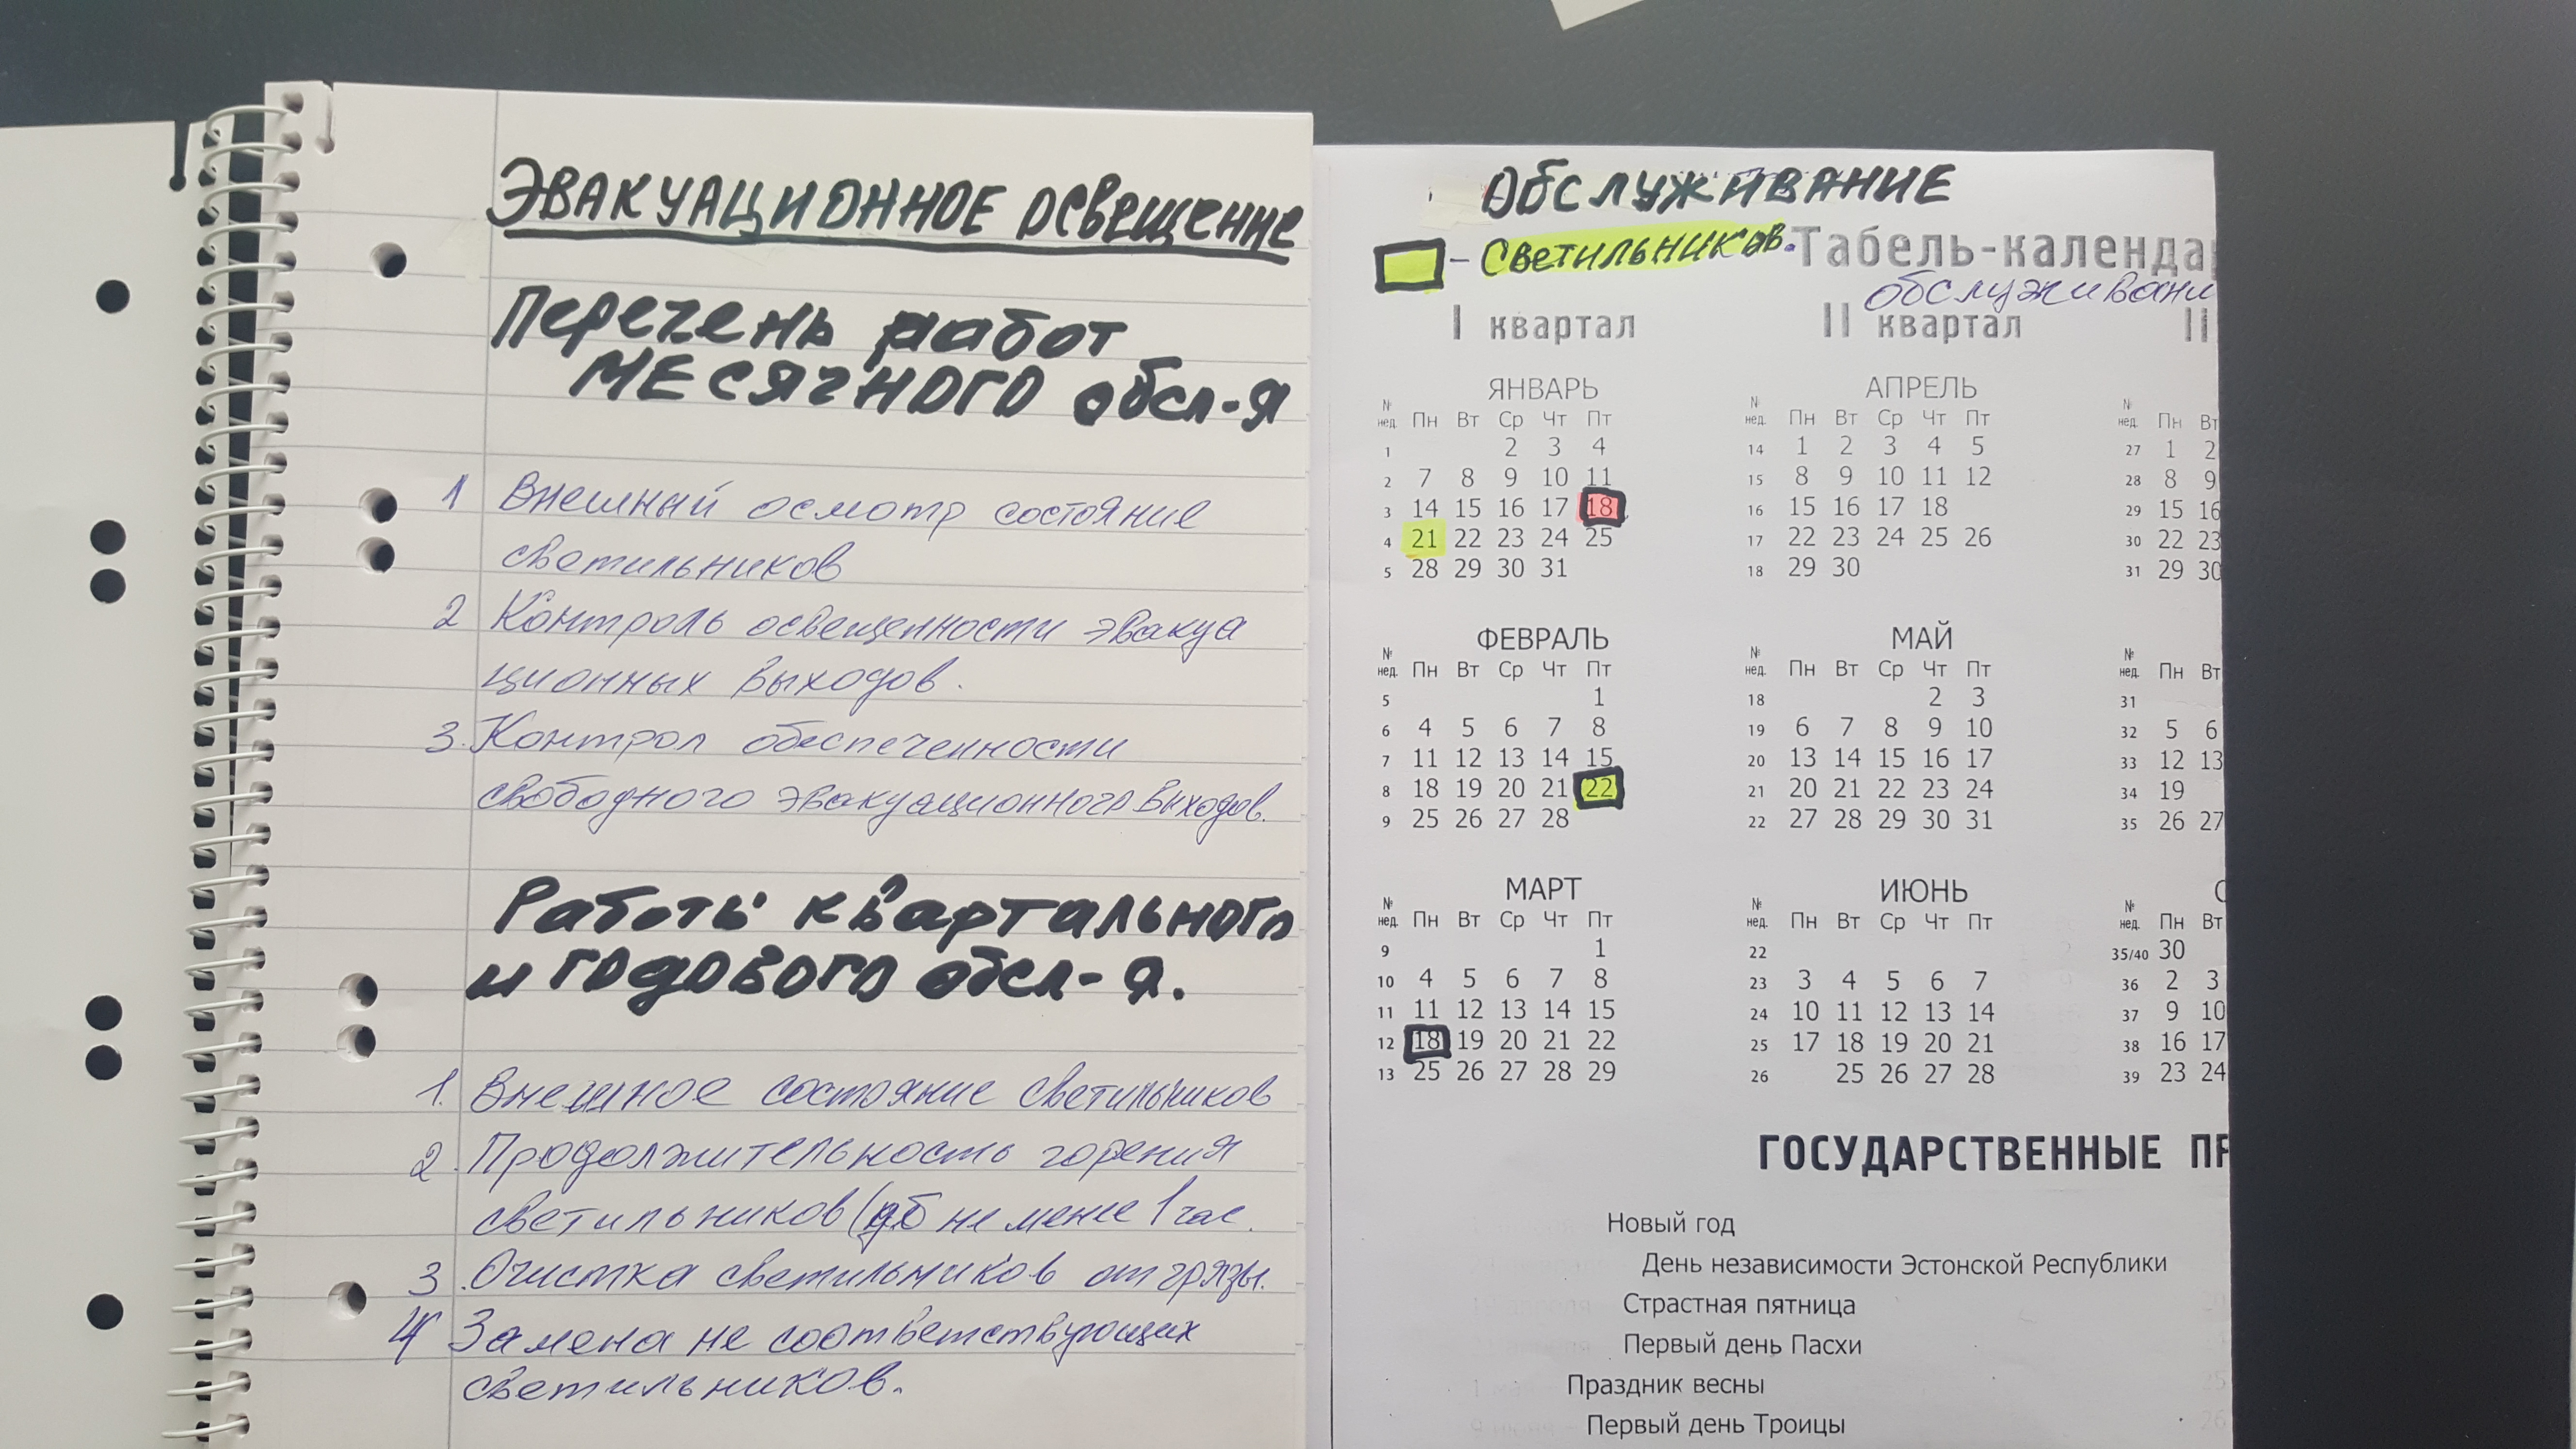 ЭВАКУАЦИОННОЕ ОСВЕЩЕНИЕ
Перечень работ
МЕСЯЧНОГО обсл-я
1 Внешный осмотр состояние
светильников
2 Контроль освещенности эвакуа
ционных выходов.
3. Контрол обеспеченности
свободного эвакуационного выходов.
Работы квартального
и годового обсл-я.
1. Внешное состояние светильников
2. Продолжительность горения
светильников (дб не менее 1 час.
3. Очистка светильников от грязы.
4 Замена не соответствующих
светильников.
ОБСЛУЖИВАНИЕ
– СВЕТИЛЬНИКОВ.
Табель-календа
обслуживани
I квартал II квартал II
ЯНВАРЬ АПРЕЛЬ
№ нед. Пн Вт Ср Чт Пт № нед. Пн Вт Ср Чт Пт № нед. Пн Вт
1 2 3 4 14 1 2 3 4 5 27 1 2
2 7 8 9 10 11 15 8 9 10 11 12 28 8 9
3 14 15 16 17 18 16 15 16 17 18 29 15 16
4 21 22 23 24 25 17 22 23 24 25 26 30 22 23
5 28 29 30 31 18 29 30 31 29 30
ФЕВРАЛЬ МАЙ
№ нед. Пн Вт Ср Чт Пт № нед. Пн Вт Ср Чт Пт № нед. Пн Вт
5 1 18 2 3 31
6 4 5 6 7 8 19 6 7 8 9 10 32 5 6
7 11 12 13 14 15 20 13 14 15 16 17 33 12 13
8 18 19 20 21 22 21 20 21 22 23 24 34 19
9 25 26 27 28 22 27 28 29 30 31 35 26 27
МАРТ ИЮНЬ С
№ нед. Пн Вт Ср Чт Пт № нед. Пн Вт Ср Чт Пт № нед. Пн Вт
9 1 22 35/40 30
10 4 5 6 7 8 23 3 4 5 6 7 36 2 3
11 11 12 13 14 15 24 10 11 12 13 14 37 9 10
12 18 19 20 21 22 25 17 18 19 20 21 38 16 17
13 25 26 27 28 29 26 25 26 27 28 39 23 24
ГОСУДАРСТВЕННЫЕ ПР
Новый год
День независимости Эстонской Республики
Страстная пятница
Первый день Пасхи
Праздник весны
Первый день Троицы